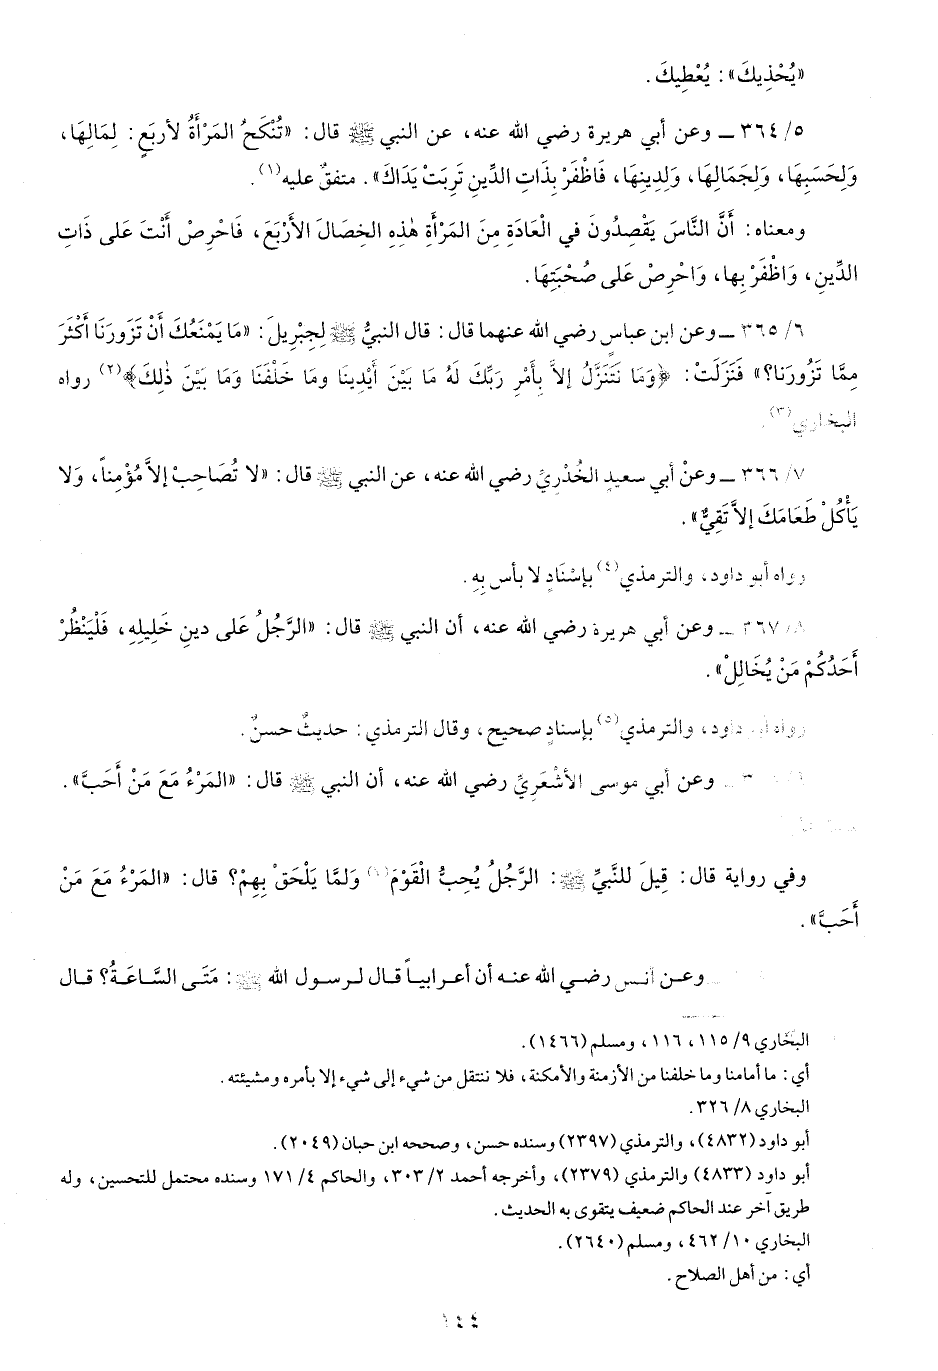 «يُحْذِيكَ»: يُعْطِيكَ.
٥/ ٣٦٤ ـ وعن أبي هريرة رضي الله عنه، عن النبي ﷺ قال: «تُنْكَحُ المَرْأَةُ لأَربَعٍ: لِمَالِهَا،
وَلِحَسَبِهَا، وَلِجَمَالِهَا، وَلِدِينِهَا، فَاظْفَرْ بِذَاتِ الدِّينِ تَرِبَتْ يَدَاكَ». متفقٌ عليه(١).
ومعناه: أَنَّ النَّاسَ يَقْصِدُونَ في الْعَادَةِ مِنَ المَرْأَةِ هٰذِهِ الخِصَالَ الأَرْبَعَ، فَاحْرِصْ أَنْتَ عَلى ذَاتِ
الدِّينِ، وَاظْفَرْ بِها، وَاحْرِصْ عَلى صُحْبَتِهَا.
٦/ ٣٦٥ ـ وعن ابن عباسٍ رضي الله عنهما قال: قال النبيُّ ﷺ لِجِبْرِيلَ: «مَا يَمْنَعُكَ أَنْ تَزُورَنَا أَكْثَرَ
مِمَّا تَزُورَنا؟» فَنَزَلَتْ: ﴿وَمَا نَتَنَزَّلُ إلاَّ بِأَمْرِ رَبِّكَ لَهُ مَا بَيْنَ أَيْدِينَا وما خَلْفَنَا وَمَا بَيْنَ ذٰلِكَ﴾(٢) رواه
البخاري(٣).
٧/ ٣٦٦ ـ وعنْ أبي سعيدٍ الخُدْرِيِّ رضي الله عنه، عن النبي ﷺ قال: «لا تُصَاحِبْ إلاَّ مُؤْمِناً، وَلا
يَأْكُلْ طَعَامَكَ إلاَّ تَقِيٌّ».
رواه أبو داود، والترمذي(٤) بإسْنَادٍ لا بأس بِهِ.
٨/ ٣٦٧ ـ وعن أبي هريرة رضي الله عنه، أن النبي ﷺ قال: «الرَّجُلُ عَلى دينِ خَلِيلِهِ، فَلْيَنْظُرْ
أَحَدُكُمْ مَنْ يُخَالِلْ».
رواه أبو داود، والترمذي(٥) بإسنادٍ صحيح، وقال الترمذي: حديثٌ حسنٌ.
وعن أبي موسى الأَشْعَرِيِّ رضي الله عنه، أن النبي ﷺ قال: «المَرْءُ مَعَ مَنْ أَحَبَّ».
وفي رواية قال: قِيلَ للنَّبيِّ ﷺ: الرَّجُلُ يُحِبُّ الْقَوْمَ وَلَمَّا يَلْحَقْ بِهِمْ؟ قال: «المَرْءُ مَعَ مَنْ
أَحَبَّ».
وعـن أنـس رضـي الله عنـه أن أعـرابيـاً قـال لـرسـول الله ﷺ: مَتَـى السَّـاعَـةُ؟ قـال
البخاري ٩/ ١١٥، ١١٦، ومسلم (١٤٦٦).
أي: ما أمامنا وما خلفنا من الأزمنة والأمكنة، فلا ننتقل من شيء إلى شيء إلا بأمره ومشيئته.
البخاري ٨/ ٣٢٦.
أبو داود (٤٨٣٢)، والترمذي (٢٣٩٧) وسنده حسن، وصححه ابن حبان (٢٠٤٩).
أبو داود (٤٨٣٣) والترمذي (٢٣٧٩)، وأخرجه أحمد ٢/ ٣٠٣، والحاكم ٤/ ١٧١ وسنده محتمل للتحسين، وله
طريق آخر عند الحاكم ضعيف يتقوى به الحديث.
البخاري ١٠/ ٤٦٢، ومسلم (٢٦٤٠).
أي: من أهل الصلاح.
١٤٤